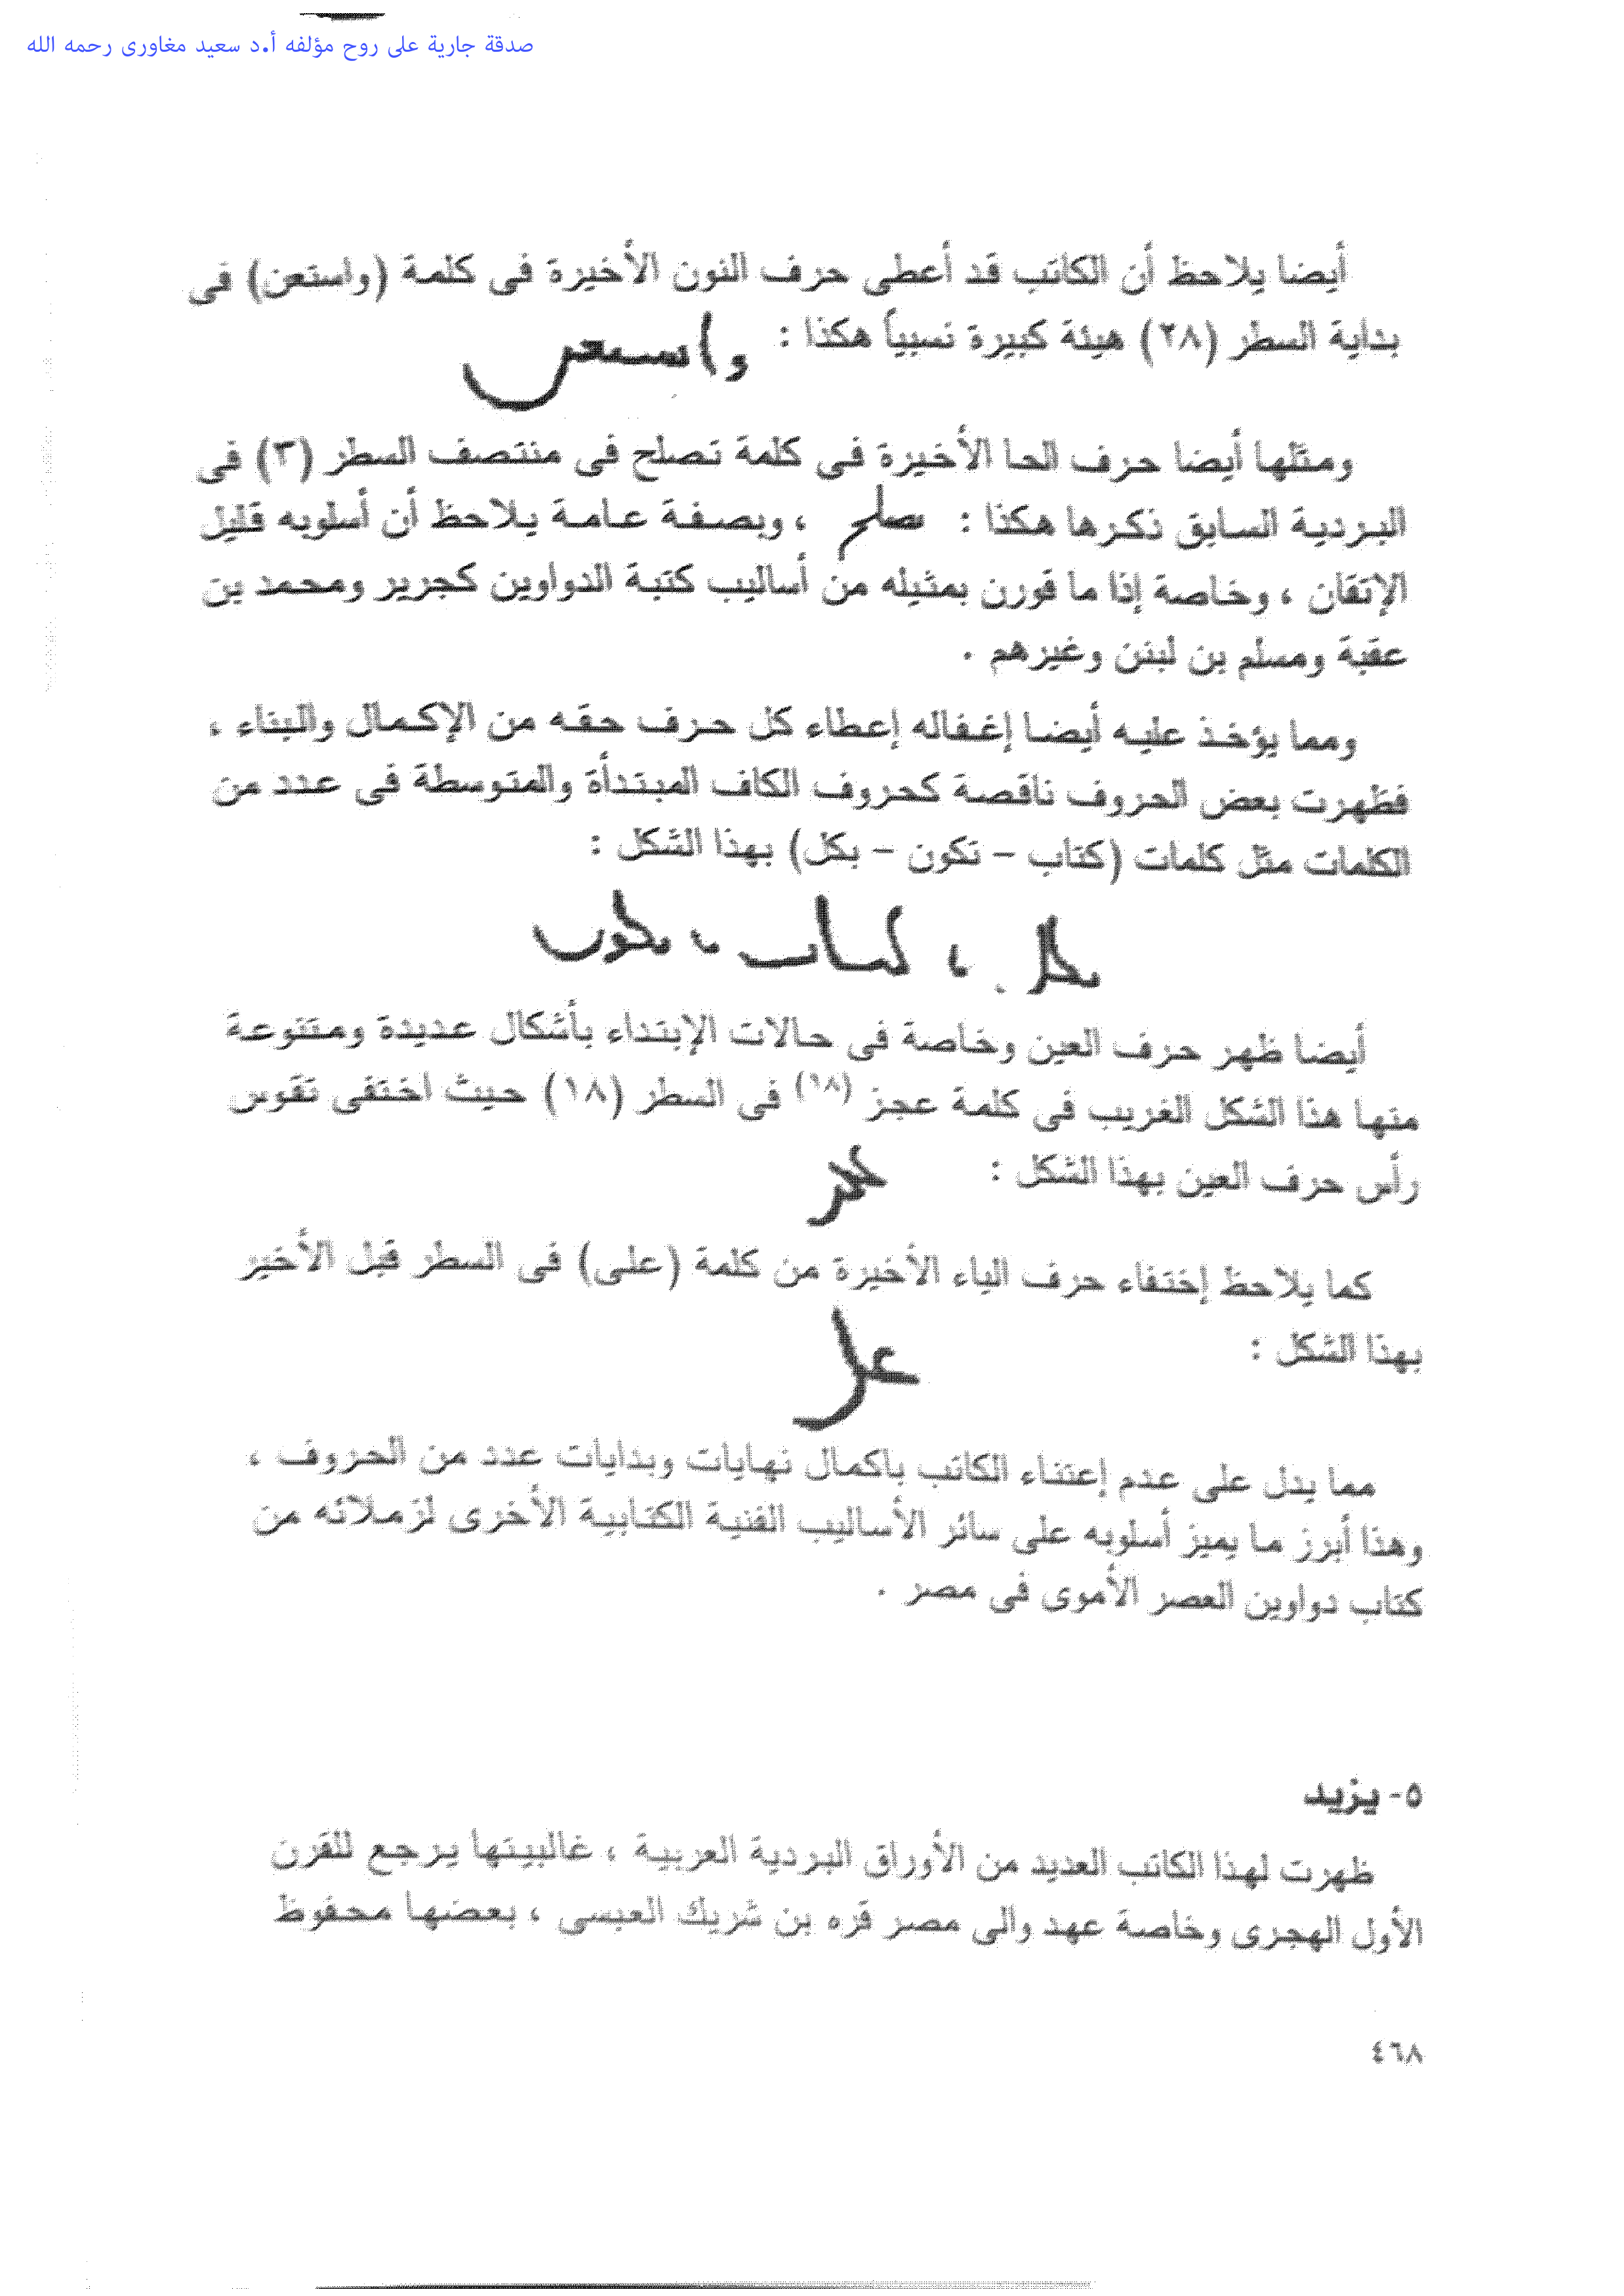 صدقة جارية على روح مؤلفه أ.د سعيد مغاورى رحمه الله
أيضا يلاحظ أن الكاتب قد أعطى حرف النون الأخيرة فى كلمة (واستعن) فى
بداية السطر (٢٨) هيئة كبيرة نسبياً هكذا : واستعن
ومثلها أيضا حرف الحا الأخيرة فى كلمة تصلح فى منتصف السطر (٣) فى
البردية السابق ذكرها هكذا : تصلح ، وبصفة عامة يلاحظ أن أسلوبه قليل
الإتقان ، وخاصة إذا ما قورن بمثيله من أساليب كتبة الدواوين كجرير ومحمد بن
عقبة ومسلم بن لبنن وغيرهم .
ومما يؤخذ عليه أيضا إغفاله إعطاء كل حرف حقه من الإكمال والبناء ،
فظهرت بعض الحروف ناقصة كحروف الكاف المبتدأة والمتوسطة فى عدد من
الكلمات مثل كلمات (كتاب – تكون – بكل) بهذا الشكل :
بكل ، كتاب ، تكون
أيضا ظهر حرف العين وخاصة فى حالات الإبتداء بأشكال عديدة ومتنوعة
منها هذا الشكل الغريب فى كلمة عجز (٦٨) فى السطر (١٨) حيث اختفى تقوس
رأس حرف العين بهذا الشكل : عجز
كما يلاحظ إختفاء حرف الياء الأخيرة من كلمة (على) فى السطر قبل الأخير
بهذا الشكل : على
مما يدل على عدم إعتناء الكاتب باكمال نهايات وبدايات عدد من الحروف ،
وهذا أبرز ما يميز أسلوبه على سائر الأساليب الفنية الكتابية الأخرى لزملائه من
كتاب دواوين العصر الأموى فى مصر .
٥- يزيد
ظهرت لهذا الكاتب العديد من الأوراق البردية العربية ، غالبيتها يرجع للقرن
الأول الهجرى وخاصة عهد والى مصر قره بن شريك العبسى ، بعضها محفوظ
٤٦٨